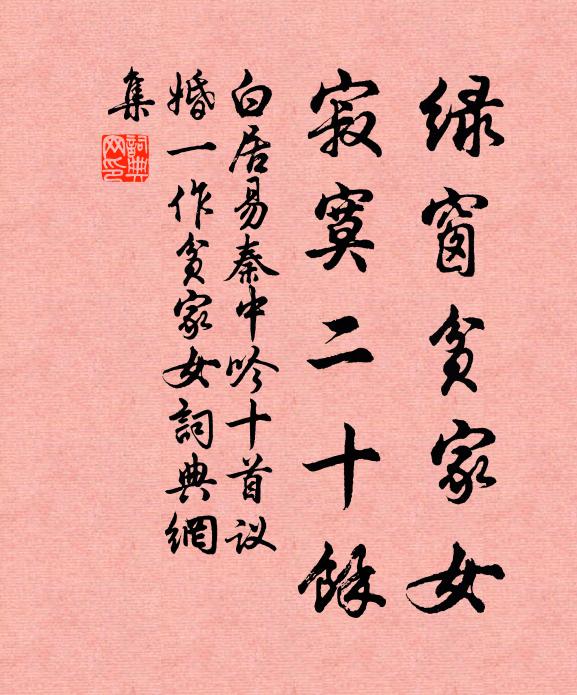 绿窗贫家女
寂寞二十餘
白居易秦中吟十首议
婚一作贫家女詞典網
集
詞典
网印